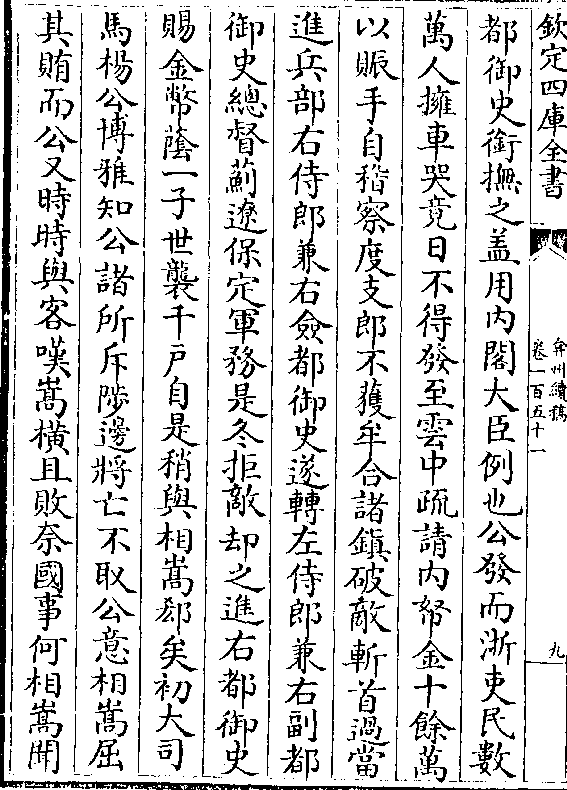 欽定四庫全書
弇州續稿
卷一百五十一
九
都御史銜撫之盖用内閣大臣例也公發而浙吏民數
萬人擁車哭竟日不得發至雲中疏請内帑金十餘萬
以賑手自稽察度支郎不獲牟合諸鎮破敵斬首過當
進兵部右侍郎兼右僉都御史遂轉左侍郎兼右副都
御史總督薊遼保定軍務是冬拒敵却之進右都御史
賜金幣蔭一子世襲千戶自是稍與相嵩郄矣初大司
馬楊公博雅知公諸所斥陟邊將亡不取公意相嵩屈
其賄而公又時時與客嘆嵩橫且敗奈國事何相嵩聞